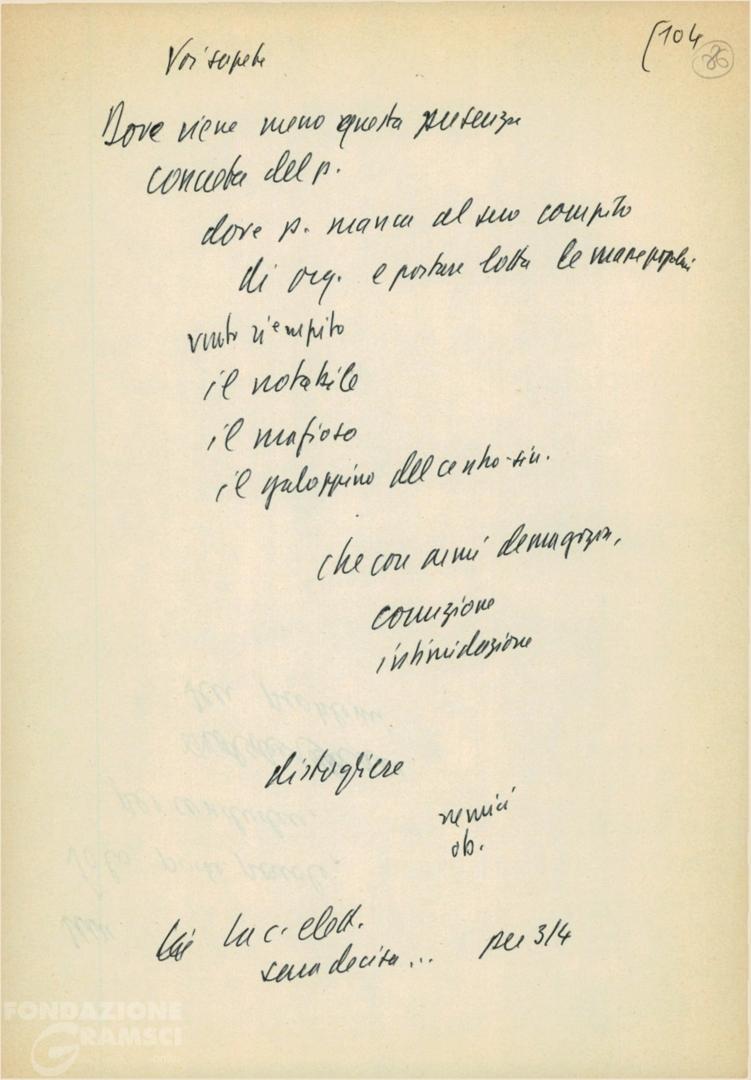 [104
26
Voi sapete
Dove viene meno questa presenza
concreta del p.
dove p. manca al suo compito
di org. e portare lotta le masse popolari
vuoto riempito
il notabile
il mafioso
il galoppino del centro-sin.
che con armi demagogia,
corruzione
intimidazione
distogliere
nemici
ob.
la c. elett.
sarà decisa... per 3/4
FONDAZIONE
GRAMSCI